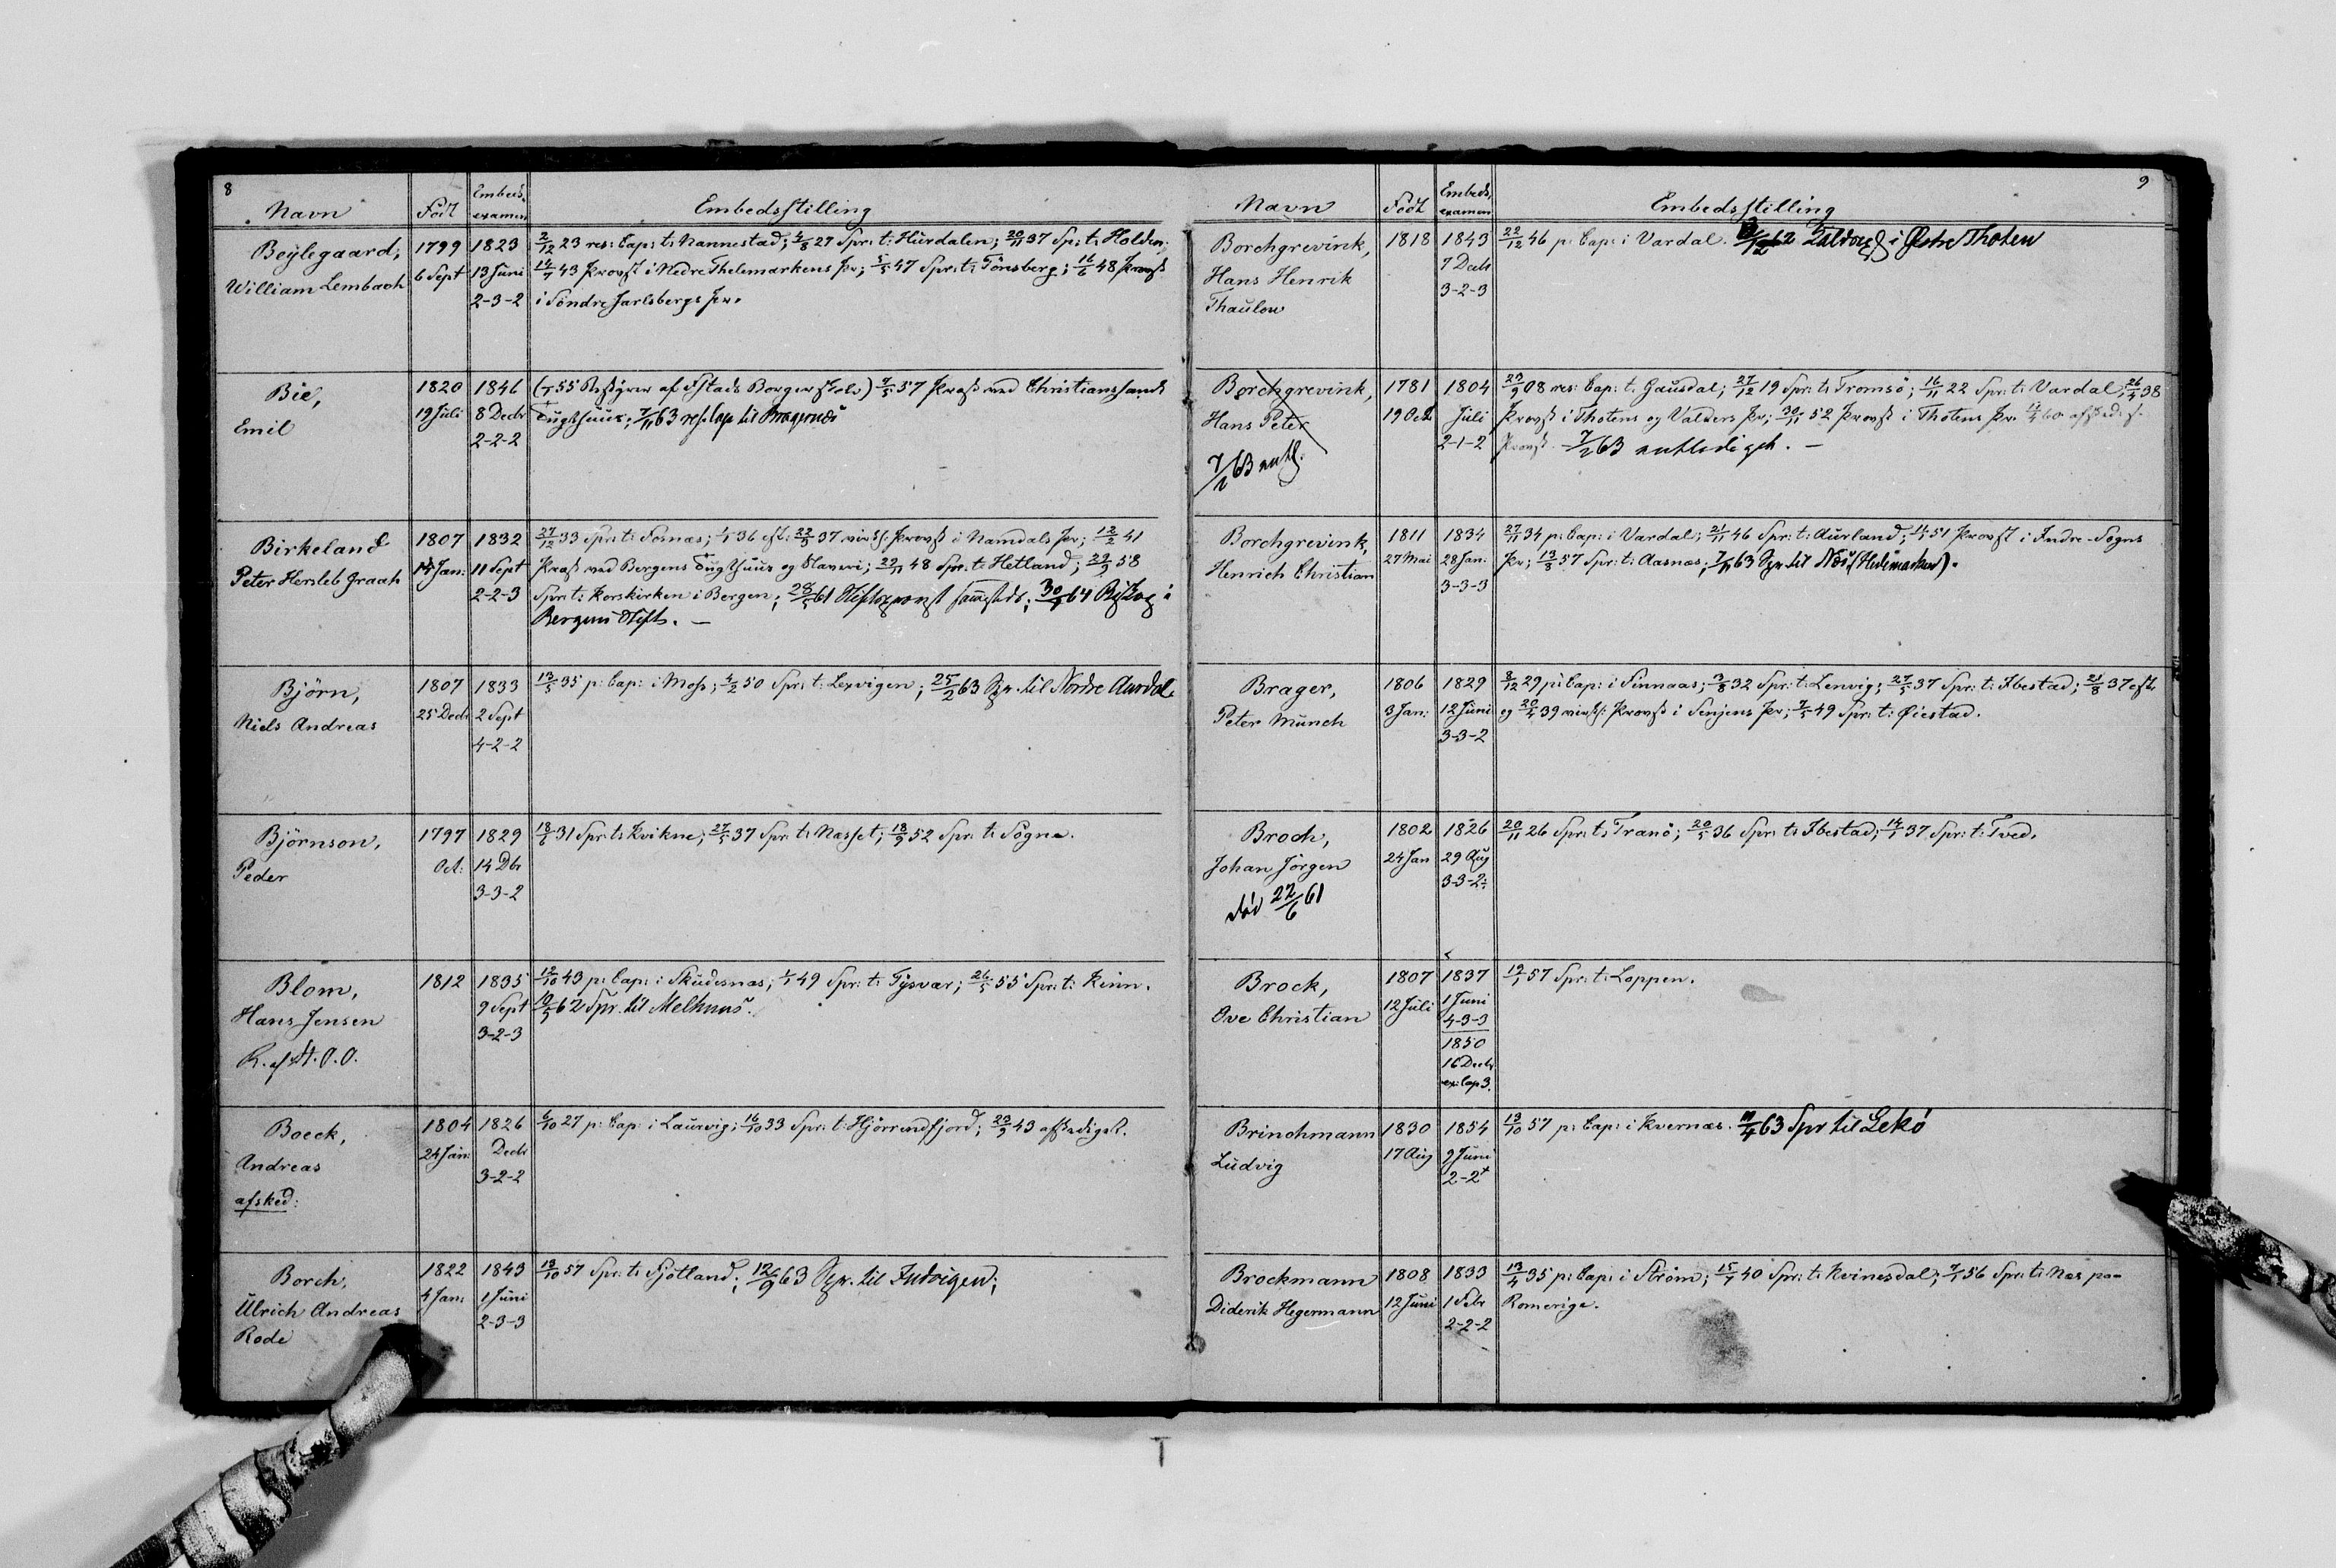 8
Navn Född Embeds. examen Embedsstilling
Beÿlegaard, 1799 1823 2/12 23 res: Cap: t: Nannestad; 4/8 27 Spr: t: Hurdalen; 20/11 37 Sp: t: Holden;
William Lembach 6 Sept 13 Juni 14/7 43 Provst i Nedre Thelemarkens Pr; 5/5 47 Spr: t: Tönsberg; 16/6 48 Provst
2-3-2 i Söndre Jarlsbergs Pr.
Bie, 1820 1846 55 Bestyrer af Stads Borgerskole) 7/5 57 Præst ved Christianssands
Emil 19 Juli 8 Decbr Tugthuus; 7/11 63 res. Cap til Bragernæs
2-2-2
Birkeland 1807 1832 27/12 33 Spr: t: Fosnæs; 36 cst: 22/5 37 virkl: Provst i Namdals Pr; 12/2 41
Peter Hersleb Graah Jan: 11 Sept Præst ved Bergens Tugthuus og Slaveri; 29/11 48 Spr: t: Hetland; 58
2-2-3 Spr: t: Korskirken i Bergen; 28/5 61 Stiftsprovst sammesteds; 64 Biskop i
Bergens Stift. —
Björn, 1807 1833 13/5 35 p: Cap: i Moss; 4/2 50 Spr: t: Lexvigen; 25/2 63 Spr. til Nordre Aurdal.
Niels Andreas 25 Decb 2 Sept
4-2-2
Björnson, 1797 1829 18/6 31 Spr: t: Kvikne; 27/5 37 Spr: t: Næsset; 18/9 52 Spr: t: Sogne.
Peder Oct: 14 Dbr
3-3-2
Blom, 1812 1835 12/10 43 p: Cap: i Skudesnæs; 49 Spr: t: Tysvær; 26/5 55 Spr: t: Kinn.
Hans Jensen 9 Sept 62 Spr. til Melhuus.
R. af St. O. O. 3-2-3
Boeck, 1804 1826 6/10 27 p: Cap: i Laurvig; 16/10 33 Spr: t: Hjörrendfjord; 23/9 43 afskediget.
Andreas 24 Jan: Decbr
afsked: 3-2-2
Borch, 1822 1843 13/10 57 Spr: t: Fjotland; 12/9 63 Spr. til Indvigen;
Ulrich Andreas 4 Jan: 1 Juni
Rode 2-3-3
9
Navn Födt Embeds. examen Embedsstilling
Borchgrevink, 1818 1843 22/12 46 p: Cap: i Vardal. 62 i Østre Thoten
Hans Henrik 7 Decbr
Thaulow 3-2-3
Borchgrevink, 1781 1804 23/9 08 res: Cap: t: Gausdal; 27/12 19 Spr: t: Tromsö; 16/11 22 Spr: t: Vardal; 26/4 38
Hans Peter 19 Oct Juli Provst i Thotens og Valders Pr; 30/11 52 Provst i Thotens Pr. 60 afsked: s.
7/2 63 entl. 2-1-2 Provst. 7/2 63 entlediget. —
Borchgrevink, 1811 1834 27/11 34 p: Cap: i Vardal; 21/11 46 Spr: t: Aurland; 51 Provst i Indre-Sogns
Henrich Christian 27 Mai 28 Jan: Pr; 13/8 57 Spr: t: Aasnæs; 7/11 63 Spr til Næs (Hedemarken).
3-3-3
Brager, 1806 1829 8/12 29 p: Cap: i Finnaas; 3/8 32 Spr: t: Lenvig; 27/5 37 Spr: t: Ibestad; 21/8 37 cst.
Peter Münch 3 Jan: 12 Juni og 20/4 39 virkl: Provst i Senjens Pr; 7/5 49 Spr: t: Øiestad.
3-3-2
Broch, 1802 1826 20/11 26 Spr: t: Tranö; 20/5 36 Spr: t: Ibestad; 14/1 37 Spr: t: Tved.
Johan Jörgen 24 Jan 29 Aug
död 22/6 61 3-3-2
Brock, 1807 1837 19/1 57 Spr: t: Loppen.
Ove Christian 12 Juli 1 Juni
4-3-3
1850
16 Decbr
ex: Cap 3.
Brinchmann 1830 1854 13/10 57 p: Cap: i Kvernæs. 11/4 63 Spr til Lekö
Ludvig 17 Aug 9 Juni
2-2+
Brockmann 1808 1833 13/4 35 p: Cap: i Ström; 15/7 40 Spr: t: Kvinesdal; 7/1 56 Spr: t: Næs paa
Diderik Hegermann 12 Juni 1 Febr Romerige.
2-2-2